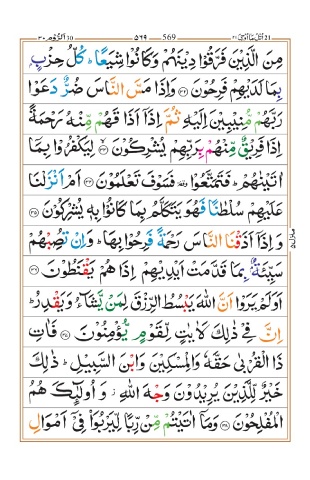 اتل ما اوحی ٢١ 569 ٥٦٩ الروم ٣٠
مِنَ الَّذِيْنَ فَرَّقُوْا دِيْنَهُمْ وَكَانُوْا شِيَعًا ؕ كُلُّ حِزْبٍۭ
بِمَا لَدَيْهِمْ فَرِحُوْنَ ﴿٣٢﴾ وَاِذَا مَسَّ النَّاسَ ضُرٌّ دَعَوْا
رَبَّهُمْ مُّنِيْبِيْنَ اِلَيْهِ ثُمَّ اِذَاۤ اَذَاقَهُمْ مِّنْهُ رَحْمَةً
اِذَا فَرِيْقٌ مِّنْهُمْ بِرَبِّهِمْ يُشْرِكُوْنَ ﴿٣٣﴾ لِيَكْفُرُوْا بِمَاۤ
اٰتَيْنٰهُمْ ؕ فَتَمَتَّعُوْا ٝ فَسَوْفَ تَعْلَمُوْنَ ﴿٣٤﴾ اَمْ اَنْزَلْنَا
عَلَيْهِمْ سُلْطٰنًا فَهُوَ يَتَكَلَّمُ بِمَا كَانُوْا بِهٖ يُشْرِكُوْنَ ﴿٣٥﴾
وَاِذَاۤ اَذَقْنَا النَّاسَ رَحْمَةً فَرِحُوْا بِهَا ؕ وَاِنْ تُصِبْهُمْ
سَيِّئَةٌۢ بِمَا قَدَّمَتْ اَيْدِيْهِمْ اِذَا هُمْ يَقْنَطُوْنَ ﴿٣٦﴾
اَوَلَمْ يَرَوْا اَنَّ اللّٰهَ يَبْسُطُ الرِّزْقَ لِمَنْ يَّشَآءُ وَيَقْدِرُ ؕ
اِنَّ فِيْ ذٰلِكَ لَاٰيٰتٍ لِّقَوْمٍ يُّؤْمِنُوْنَ ﴿٣٧﴾ فَاٰتِ
ذَا الْقُرْبٰى حَقَّهٗ وَالْمِسْكِيْنَ وَابْنَ السَّبِيْلِ ؕ ذٰلِكَ
خَيْرٌ لِّلَّذِيْنَ يُرِيْدُوْنَ وَجْهَ اللّٰهِ ؗ وَاُولٰٓئِكَ هُمُ
الْمُفْلِحُوْنَ ﴿٣٨﴾ وَمَاۤ اٰتَيْتُمْ مِّنْ رِّبًا لِّيَرْبُوَا۟ فِيْۤ اَمْوَالِ
منزل ٥